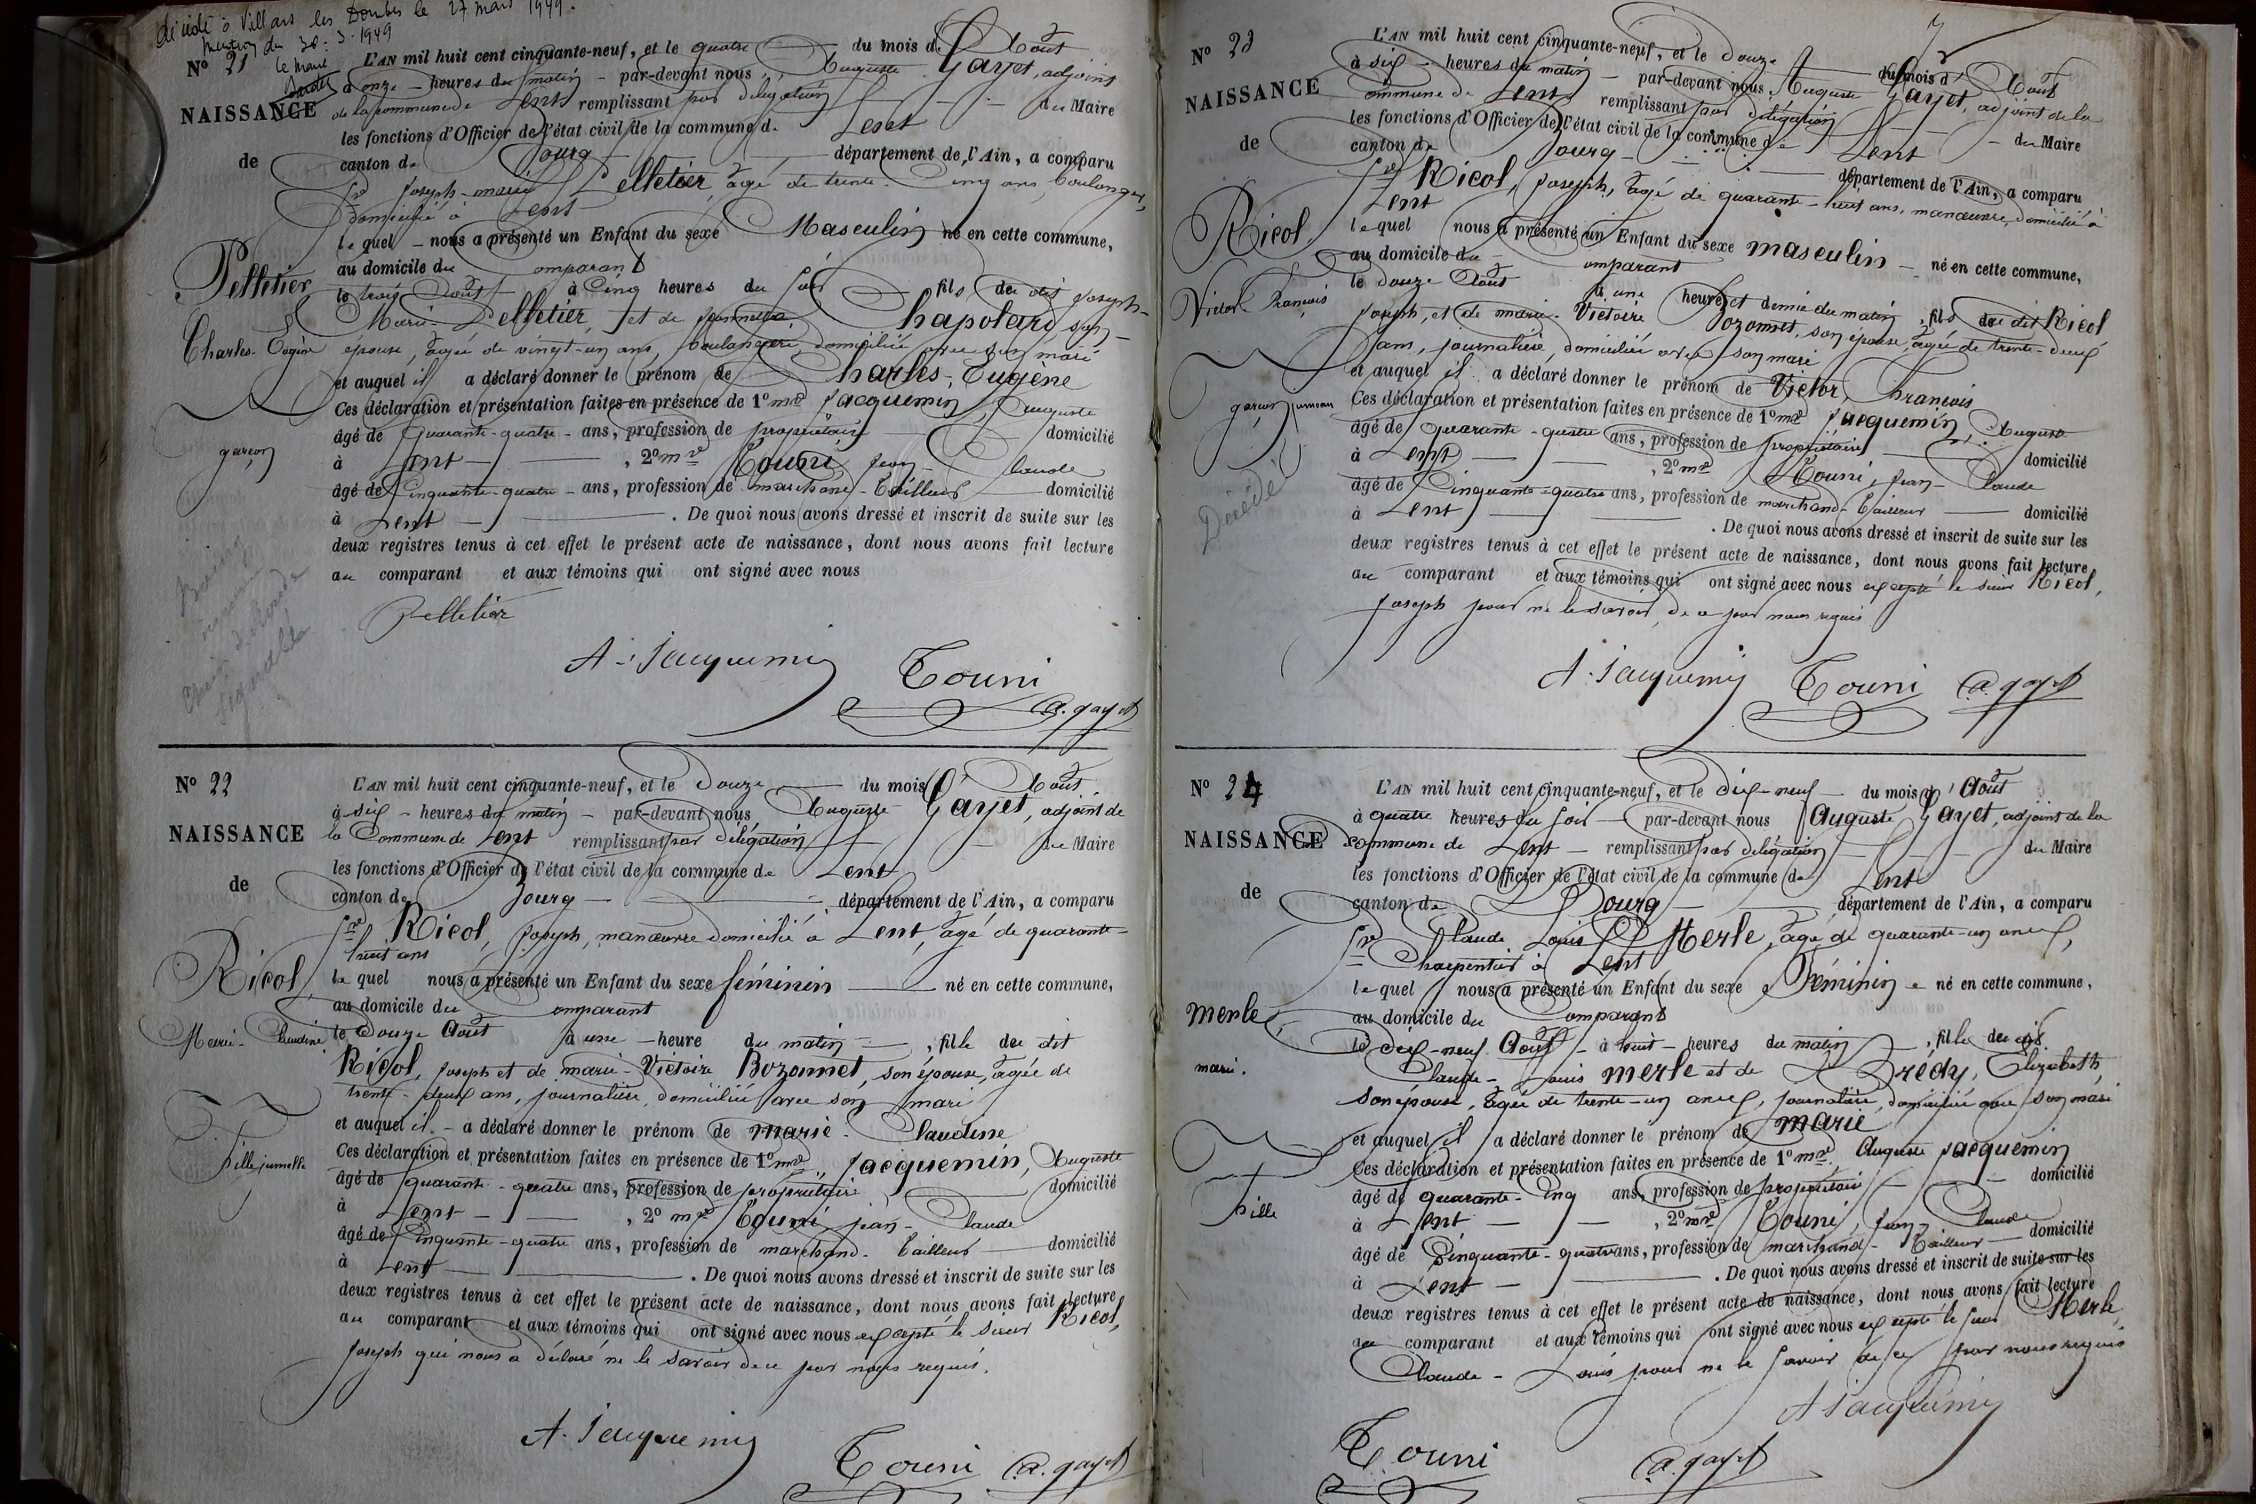 décédé à Villars les Dombes le 27 mars 1949.
Mention du 30-3-1949
Le Maire
N° 21
NAISSANCE
de
Pelletier
Charles-Eugène
garçon
L'AN mil huit cent cinquante-neuf, et le quatre du mois d'Août
à onze heures du matin par-devant nous Auguste Gayet, adjoint
de la commune de Lent remplissant par délégation du Maire
les fonctions d'Officier de l'état civil de la commune de Lent
canton de Bourg département de l'Ain, a comparu
Sr Joseph-marie Pelletier, âgé de trente-cinq ans, boulanger,
domicilié à Lent
lequel nous a présenté un Enfant du sexe Masculin né en cette commune,
au domicile du Comparant
le trois Août à Cinq heures du soir fils du dit Joseph-
Marie Pelletier, et de Chapolard son
épouse, âgée de vingt-un ans, boulangère, domiciliée avec son mari
et auquel il a déclaré donner le prénom de Charles-Eugène
Ces déclaration et présentation faites en présence de 1° mr Jacquemin, Auguste
âgé de quarante-quatre ans, profession de propriétaire domicilié
à Lent, 2° mr Touni, jean-Claude
âgé de Cinquante-quatre ans, profession de marchand-Tailleur domicilié
à Lent. De quoi nous avons dressé et inscrit de suite sur les
deux registres tenus à cet effet le présent acte de naissance, dont nous avons fait lecture
au comparant et aux témoins qui ont signé avec nous
Pelletier
A. Jacquemin Touni
A. gayet
N° 22
NAISSANCE
de
Ricol
Marie-Claudine
Fille jumelle
L'AN mil huit cent cinquante-neuf, et le Douze du mois d'Août
à six heures du matin par-devant nous Auguste Gayet, adjoint de
la Commune de Lent remplissant par délégation du Maire
les fonctions d'Officier de l'état civil de la commune de Lent
canton de Bourg département de l'Ain, a comparu
Sr Ricol, Joseph, manœuvre domicilié à Lent, âgé de quarante-
huit ans
lequel nous a présenté un Enfant du sexe féminin né en cette commune,
au domicile du Comparant
le Douze Août à une heure du matin, fille du dit
Ricol, Joseph et de marie-Victoire Bozonnet, son épouse, âgée de
trente-deux ans, journalière, domiciliée avec son mari
et auquel il a déclaré donner le prénom de marie-Claudine
Ces déclaration et présentation faites en présence de 1° mr Jacquemin, Auguste
âgé de quarante-quatre ans, profession de propriétaire domicilié
à Lent, 2° mr Touni jean-Claude
âgé de Cinquante-quatre ans, profession de marchand-Tailleur domicilié
à Lent. De quoi nous avons dressé et inscrit de suite sur les
deux registres tenus à cet effet le présent acte de naissance, dont nous avons fait lecture
au comparant et aux témoins qui ont signé avec nous excepté le sieur Ricol,
Joseph qui nous a déclaré ne le savoir de ce par nous requis.
A. Jacquemin
Touni A. gayet
N° 23
NAISSANCE
de
Ricol
Victor François
garçon jumeau
Décédé
L'AN mil huit cent cinquante-neuf, et le Douze du mois d'Août
à six heures du matin par-devant nous Auguste Gayet, adjoint de la
Commune de Lent remplissant par délégation du Maire
les fonctions d'Officier de l'état civil de la commune de Lent
canton de Bourg département de l'Ain, a comparu
Sr Ricol, Joseph, âgé de quarante-huit ans, manœuvre, domicilié à
Lent
lequel nous a présenté un Enfant du sexe masculin né en cette commune,
au domicile du Comparant
le Douze Août à une heure et demie du matin, fils du dit Ricol
Joseph, et de marie-Victoire Bozonnet, son épouse, âgée de trente-deux
ans, journalière, domiciliée avec son mari
et auquel il a déclaré donner le prénom de Victor, François
Ces déclaration et présentation faites en présence de 1° mr Jacquemin, Auguste
âgé de quarante-quatre ans, profession de propriétaire domicilié
à Lent, 2° mr Touni, jean-Claude
âgé de Cinquante-quatre ans, profession de marchand-Tailleur domicilié
à Lent. De quoi nous avons dressé et inscrit de suite sur les
deux registres tenus à cet effet le présent acte de naissance, dont nous avons fait lecture
au comparant et aux témoins qui ont signé avec nous excepté le sieur Ricol,
Joseph pour ne le savoir, de ce par nous requis
A. Jacquemin Touni A. gayet
N° 24
NAISSANCE
de
Merle
marie.
Fille
L'AN mil huit cent cinquante-neuf, et le dix-neuf du mois d'Août
à quatre heures du soir par-devant nous Auguste Gayet, adjoint de la
Commune de Lent remplissant par délégation du Maire
les fonctions d'Officier de l'état civil de la commune de Lent
canton de Bourg département de l'Ain, a comparu
Sr Claude Louis Merle, âgé de quarante-un ans,
Charpentier à Lent
lequel nous a présenté un Enfant du sexe Féminin né en cette commune,
au domicile du Comparant
le dix-neuf Août à huit heures du matin, fille du dit
Claude-Louis merle et de Brédy, Elizabeth,
son épouse, âgée de trente-un ans, journalière, domiciliée avec son mari
et auquel il a déclaré donner le prénom de marie
Ces déclaration et présentation faites en présence de 1° mr Auguste Jacquemin
âgé de quarante-Cinq ans, profession de propriétaire domicilié
à Lent, 2° mr Touni, jean-Claude
âgé de Cinquante-quatre ans, profession de marchand-Tailleur domicilié
à Lent. De quoi nous avons dressé et inscrit de suite sur les
deux registres tenus à cet effet le présent acte de naissance, dont nous avons fait lecture
au comparant et aux témoins qui ont signé avec nous excepté le sieur Merle,
Claude-Louis pour ne le savoir de ce par nous requis
A Jacquemin
Touni A. gayet